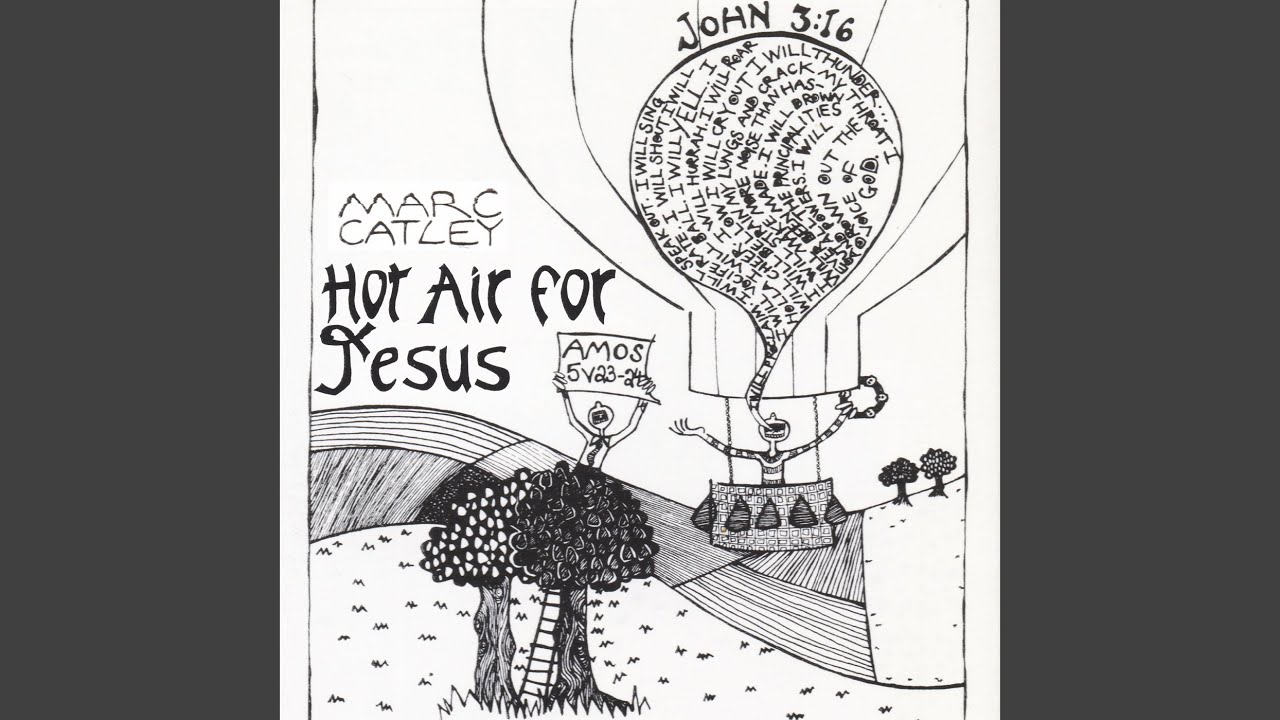 JOHN 3:16
SPEAK OUT I WILL SING
I WILL SHOUT I WILL
I WILL YELL. I
WILL HURRAH. I WILL ROAR
I WILL CRY OUT I WILL THUNDER...
MY LUNGS AND CRACK MY THROAT I
WILL MAKE MORE NOISE THAN HAS
BEEN MADE. I WILL DROWN
THE PRINCIPALITIES
POWERS. I WILL
DROWN OUT THE
VOICE OF
GOD.
I WILL PROCLAIM
MARC
CATLEY
HOT AIR FOR
JESUS
AMOS
5V23-24